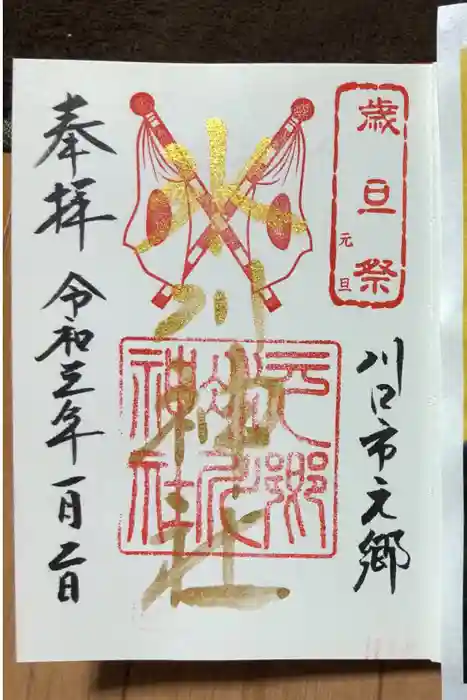 歳旦祭
元旦
川口市元郷
氷川神社
元郷
氷川
神社
奉拝
令和三年一月二日